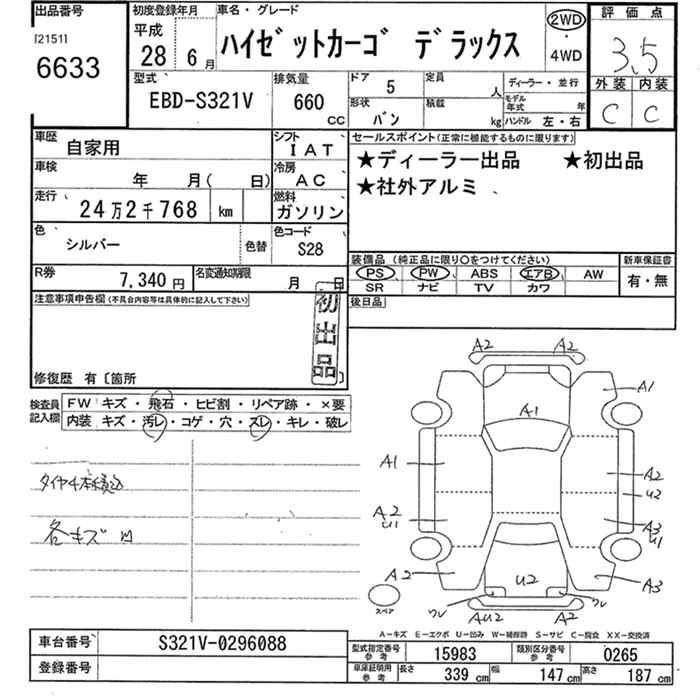 出品番号
[2151]
6633
初度登録年月
平成
28年 6月
車名・グレード
ハイゼットカーゴ デラックス
2WD
・
4WD
評価点
3.5
外装 内装
C C
型式
EBD-S321V
排気量
660
CC
ドア 5
定員 人
形状 バン
積載 kg
ディーラー・並行
モデル年式 年
ハンドル 左・右
車歴 自家用
シフト IAT
車検 年 月( 日)
冷房 AC
走行 24万2千768 km
燃料 ガソリン
色 シルバー
色替
色コード S28
R券 7,340円
名変通知期限 月 日
セールスポイント(正常に機能するものに限ります)
★ディーラー出品 ★初出品
★社外アルミ、
装備品 (純正品に限り○をつけてください)
PS PW ABS エアB AW
SR ナビ TV カワ
新車保証書
有・無
後日品
注意事項申告欄(不具合内容等は具体的に記入して下さい)
初出品
修復歴 有〔箇所 〕
検査員記入欄
FW キズ・飛石・ヒビ割・リペア跡・×要
内装 キズ・汚レ・コゲ・穴・スレ・キレ・破レ
タイヤ4本積込
各キズ凹
A2 A2
A1
A1
A1
A2
U2
A2
U1
A3
U1
A2
U2
A3
ワレ
ワレ
AU2
A2
スペア
A-キズ E-エクボ U-凹み W-補修跡 S-サビ C-腐食 XX-交換済
車台番号 S321V-0296088
登録番号
型式指定番号 参考 15983
類別区分番号 参考 0265
車庫証明用 参考
長さ 339 cm
幅 147 cm
高さ 187 cm